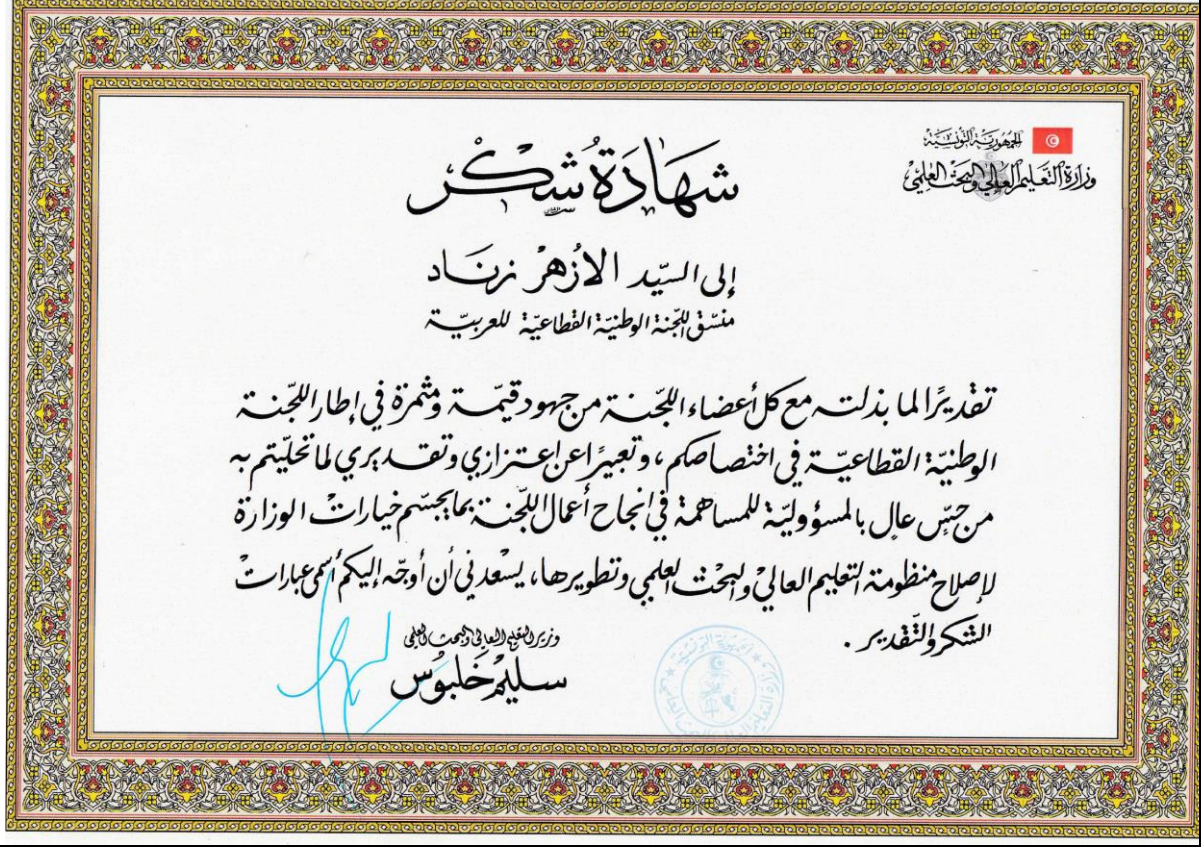 الجمهورية التونسية
وزارة التعليم العالي والبحث العلمي
شهادة شكر
إلى السيّد الأزهر زنّاد
منسّق اللجنة الوطنيّة القطاعيّة للعربيّة
تقديرًا لما بذلته مع كل أعضاء اللجنة من جهود قيّمة ومثمرة في إطار اللجنة
الوطنيّة القطاعيّة في اختصاصكم، وتعبيرًا عن اعتزازي وتقديري لما تحلّيتم به
من حسّ عال بالمسؤوليّة للمساهمة في انجاح أعمال اللجنة بما يجسّم خيارات الوزارة
لإصلاح منظومة التعليم العالي والبحث العلمي وتطويرها، يسعدني أن أوجّه إليكم أسمى عبارات
الشكر والتّقدير.
وزير التعليم العالي والبحث العلمي
سليم خلبوس